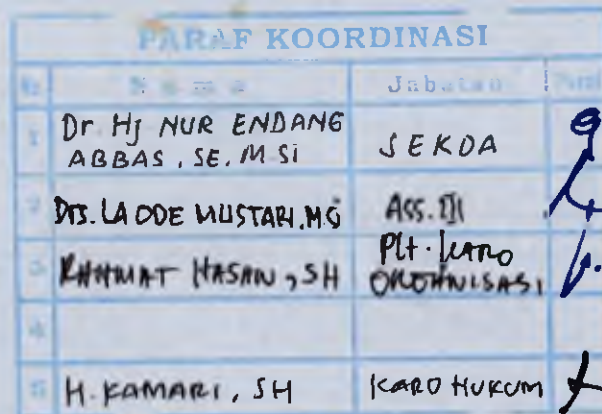 PARAF KOORDINASI
No Nama Jabatan
1 Dr. Hj NUR ENDANG
ABBAS, SE. M.Si SEKDA
2 Drs. LA ODE MUSTARI, M.Si Ass. III
3 RAHMAT HASAN, SH Plt. KARO
ORGANISASI
4
5 H. KAMARI, SH KARO HUKUM